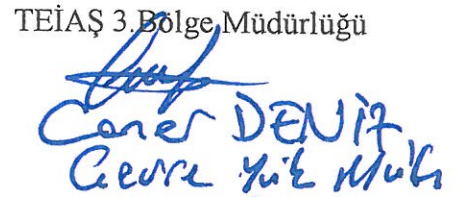 TEİAŞ 3.Bölge Müdürlüğü
Caner DENİZ
Çevre Yük Müh